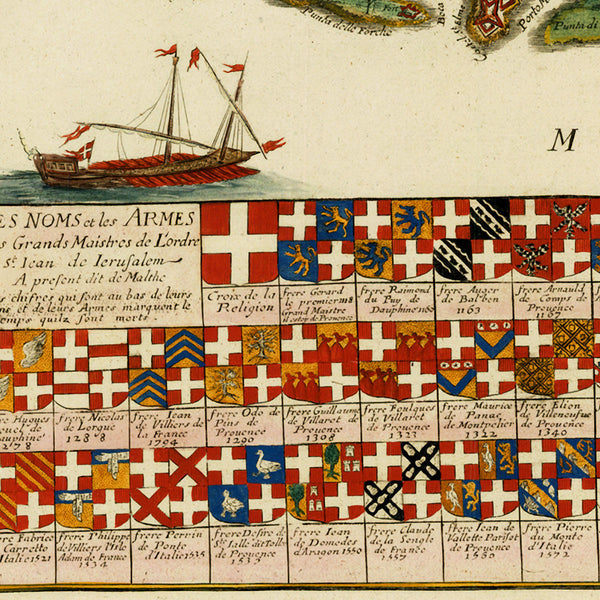 Punta delle Forche
Punta di
M
ES NOMS et les ARMES
s Grands Maistres de L'ordre
St Iean de Ierusalem
A present dit de Malthe
s chifres qui sont au bas de leurs
et de leurs Armes marquent le
temps quilz sont morts.
Croix de la
Religion
frere Gerard
le premier
Grand Maistre
de Prouence
frere Raimond
du Puy de
Dauphine 1160
frere Auger
de Balben
1163
frere Arnauld
de Comps de
Prouence
1167
re Hugues
Dauphiné
1278
frere Nicolas
de Lorgue
1288
frere Iean
de Villiers de
la France
1294
frere Odo de
Pins de
Prouence
1290
frere Guillaume
de Villaret de
Prouence
1308
frere Foulques
de Villaret de
Prouence
1323
frere Maurice
de Pinac
de Montpelier
1322
frere Elion de
Villeneufue
de Prouence
1340
ere Fabrice
Carretto
Italie 1521
frere Philippe
de Villiers l'Isle
Adam de France
1534
frere Perrin
de Ponte
d'Italie 1535
frere Desire de
St Ialle dit Tolle
de Prouence
1535
frere Iean
de Domedes
d'Aragon 1550
frere Claude
de la Sengle
de France
1557
frere Iean de
Vallette Parisot
de Prouence
frere Pierre
du Monte
d'Italie
1572